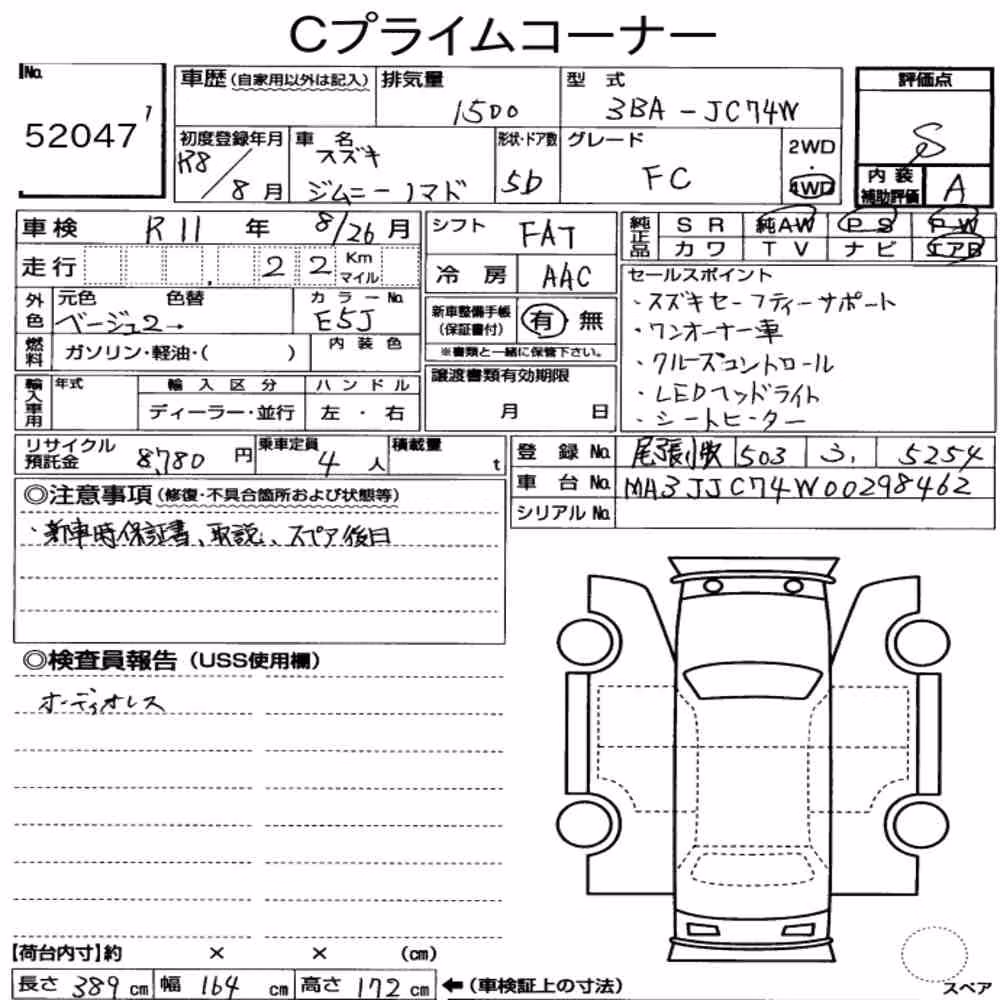 Cプライムコーナー
No.
52047 1
車歴(自家用以外は記入)
排気量
1500
型式
3BA-JC74W
評価点
S
初度登録年月
R8/8月
車名
スズキ
ジムニーノマド
形状・ドア数
5D
グレード
FC
2WD
・
4WD
内装補助評価
A
車検 R11年 8/26月
走行 22 Km マイル
外色
元色 色替
ベージュ2→
カラーNo.
E5J
燃料
ガソリン・軽油・( )
内装色
輸入車用
年式
輸入区分
ディーラー・並行
ハンドル
左・右
シフト FAT
冷房 AAC
新車整備手帳(保証書付) 有 無
※書類と一緒に保管下さい。
譲渡書類有効期限
月 日
純正品
SR 純AW PS PW
カワ TV ナビ エアB
セールスポイント
・スズキセーフティーサポート
・ワンオーナー車
・クルーズコントロール
・LEDヘッドライト
・シートヒーター
リサイクル預託金 8,780円
乗車定員 4人
積載量 t
登録No. 尾張小牧 503 う 5254
車台No. MA3JJC74W00298462
シリアルNo.
◎注意事項(修復・不具合箇所および状態等)
・新車時保証書、取説、スペア後日
◎検査員報告(USS使用欄)
オーディオレス
【荷台内寸】約 × × (cm)
長さ 389cm 幅 164cm 高さ 172cm ←(車検証上の寸法)
スペア